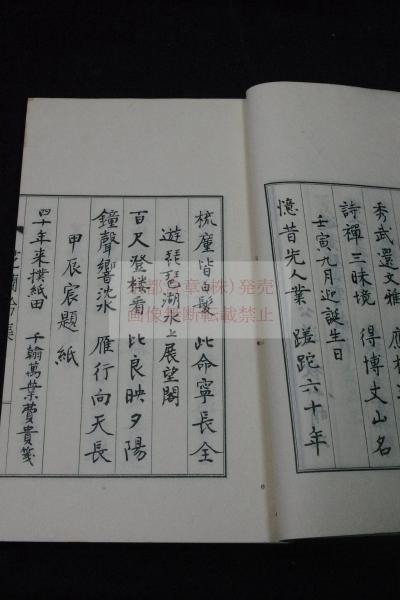 秀武還文雅
詩禪三昧境 得博丈山名
壬寅九月迎誕生日
憶昔先人業 蹉跎六十年
梳塵皆白髮 此命寧長全
遊琵琶湖水上展望閣
百尺登樓看 比良映夕陽
鐘聲響沈水 雁行向天長
甲辰宸題紙
四十年来撲紙田 千翰萬葉費貴箋
吟集
(株)発売
画像無断転載禁止